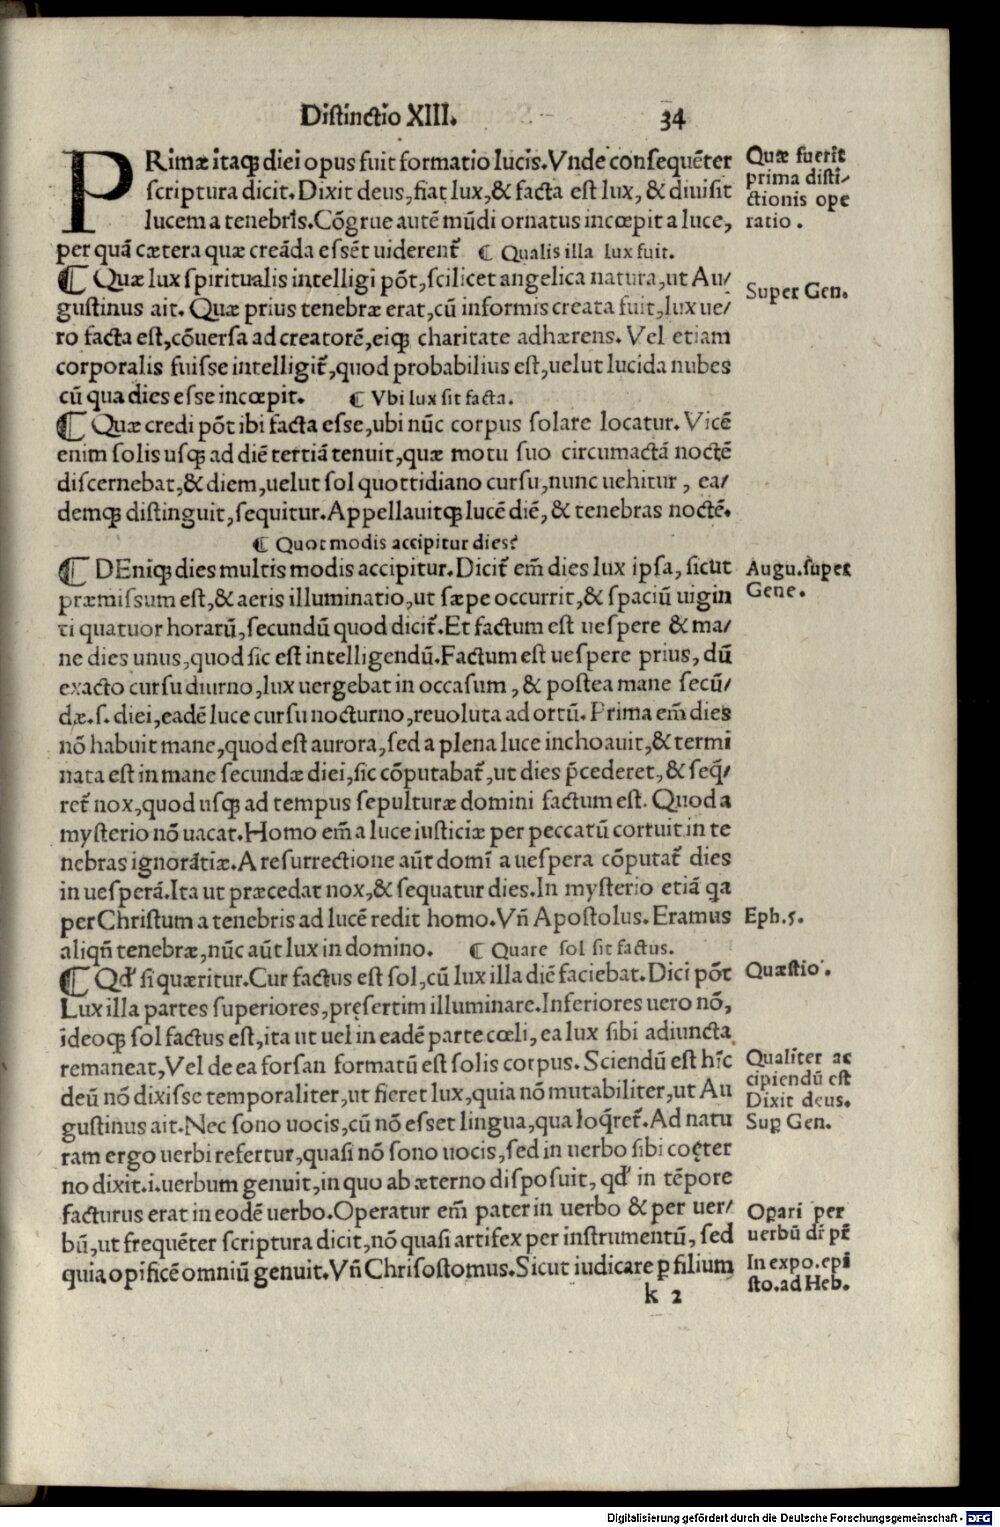 Distinctio XIII. 34
PRimæ itaqꝫ diei opus fuit formatio lucis. Vnde consequēter
scriptura dicit. Dixit deus, fiat lux, & facta est lux, & diuisit
lucem a tenebris. Cōgrue autē mūdi ornatus incœpit a luce,
per quā cætera quæ creāda essēt uiderent᷑ ¶ Qualis illa lux fuit.
¶ Quæ lux spiritualis intelligi pōt, scilicet angelica natura, ut Au/
gustinus ait. Quæ prius tenebræ erat, cū informis creata fuit, lux ue/
ro facta est, cōuersa ad creatorē, eiqꝫ charitate adhærens. Vel etiam
corporalis fuisse intelligit᷑, quod probabilius est, uelut lucida nubes
cū qua dies esse incœpit. ¶ Vbi lux sit facta.
¶ Quæ credi pōt ibi facta esse, ubi nūc corpus solare locatur. Vicē
enim solis usqꝫ ad diē tertiā tenuit, quæ motu suo circumactā noctē
discernebat, & diem, uelut sol quottidiano cursu, nunc uehitur, ea/
demqꝫ distinguit, sequitur. Appellauitqꝫ lucē diē, & tenebras noctē.
¶ Quot modis accipitur dies?
¶ DEniqꝫ dies multis modis accipitur. Dicit᷑ em̄ dies lux ipsa, sicut
præmissum est, & aeris illuminatio, ut sæpe occurrit, & spaciū uigin
ti quatuor horarū, secundū quod dicit᷑. Et factum est uespere & ma/
ne dies unus, quod sic est intelligendū. Factum est uespere prius, dū
exacto cursu diurno, lux uergebat in occasum, & postea mane secū/
dæ .s. diei, eadē luce cursu nocturno, reuoluta ad ortū. Prima em̄ dies
nō habuit mane, quod est aurora, sed a plena luce inchoauit, & termi
nata est in mane secundæ diei, sic cōputabat᷑, ut dies p̄cederet, & seq̄/
ret᷑ nox, quod usqꝫ ad tempus sepulturæ domini factum est. Quod a
mysterio nō uacat. Homo em̄ a luce iusticiæ per peccatū corruit in te
nebras ignorātiæ. A resurrectione aūt domī a uespera cōputat᷑ dies
in uesperā. Ita ut præcedat nox, & sequatur dies. In mysterio etiā q̨a
per Christum a tenebris ad lucē redit homo. Vn̄ Apostolus. Eramus
aliqn̄ tenebræ, nūc aūt lux in domino. ¶ Quare sol sit factus.
¶ Qď si quæritur. Cur factus est sol, cū lux illa diē faciebat. Dici pōt
Lux illa partes superiores, pręsertim illuminare. Inferiores uero nō,
ideoqꝫ sol factus est, ita ut uel in eadē parte cœli, ea lux sibi adiuncta
remaneat, Vel de ea forsan formatū est solis corpus. Sciendū est hīc
deū nō dixisse temporaliter, ut fieret lux, quia nō mutabiliter, ut Au
gustinus ait. Nec sono uocis, cū nō esset lingua, qua loq̄ret᷑. Ad natu
ram ergo uerbi refertur, quasi nō sono uocis, sed in uerbo sibi coęter
no dixit .i. uerbum genuit, in quo ab æterno disposuit, qď in tēpore
facturus erat in eodē uerbo. Operatur em̄ pater in uerbo & per uer/
bū, ut frequēter scriptura dicit, nō quasi artifex per instrumentū, sed
quia opificē omniū genuit. Vn̄ Chrisostomus. Sicut iudicare ꝑ filium
k 2
Quæ fuerit
prima disti/
ctionis ope
ratio.
Super Gen.
Augu. super
Gene.
Eph. 5.
Quæstio.
Qualiter ac
cipiendū est
Dixit deus.
Suꝑ Gen.
Opari per
uerbū dr̄ pr̄
In expo. epi
sto. ad Heb.
Digitalisierung gefördert durch die Deutsche Forschungsgemeinschaft - DFG